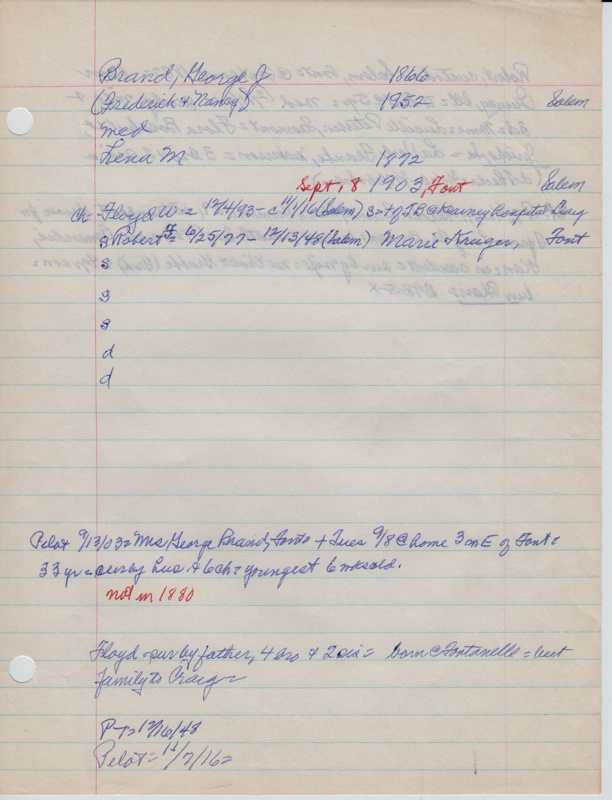 Brand, George J. 1866
(Frederick & Nancy) 1952 Salem
med
Lena M 1872
Sept, 8 1903, Font Salem
Ch = Floyd W = 12/4/93 - c 11/1/16 (Salem) s = + of TB @ Kearney hospital Craig
s Robert F = 6/25/97 - 12/13/48 (Salem) Marie Kruger, Font
s
s
s
d
d
Pilot 9/13/03 = Mrs George Brand, Font = + Tues 9/8 @ home 3 m E of Font =
33 yr = sur by hus. & 6 ch = youngest 6 wks old.
not in 1880
Floyd - sur by father, 4 bro & 2 sis = born @ Fontanelle =
family to Craig =
P-T = 12/16/48
Pilot = 11/7/16 =